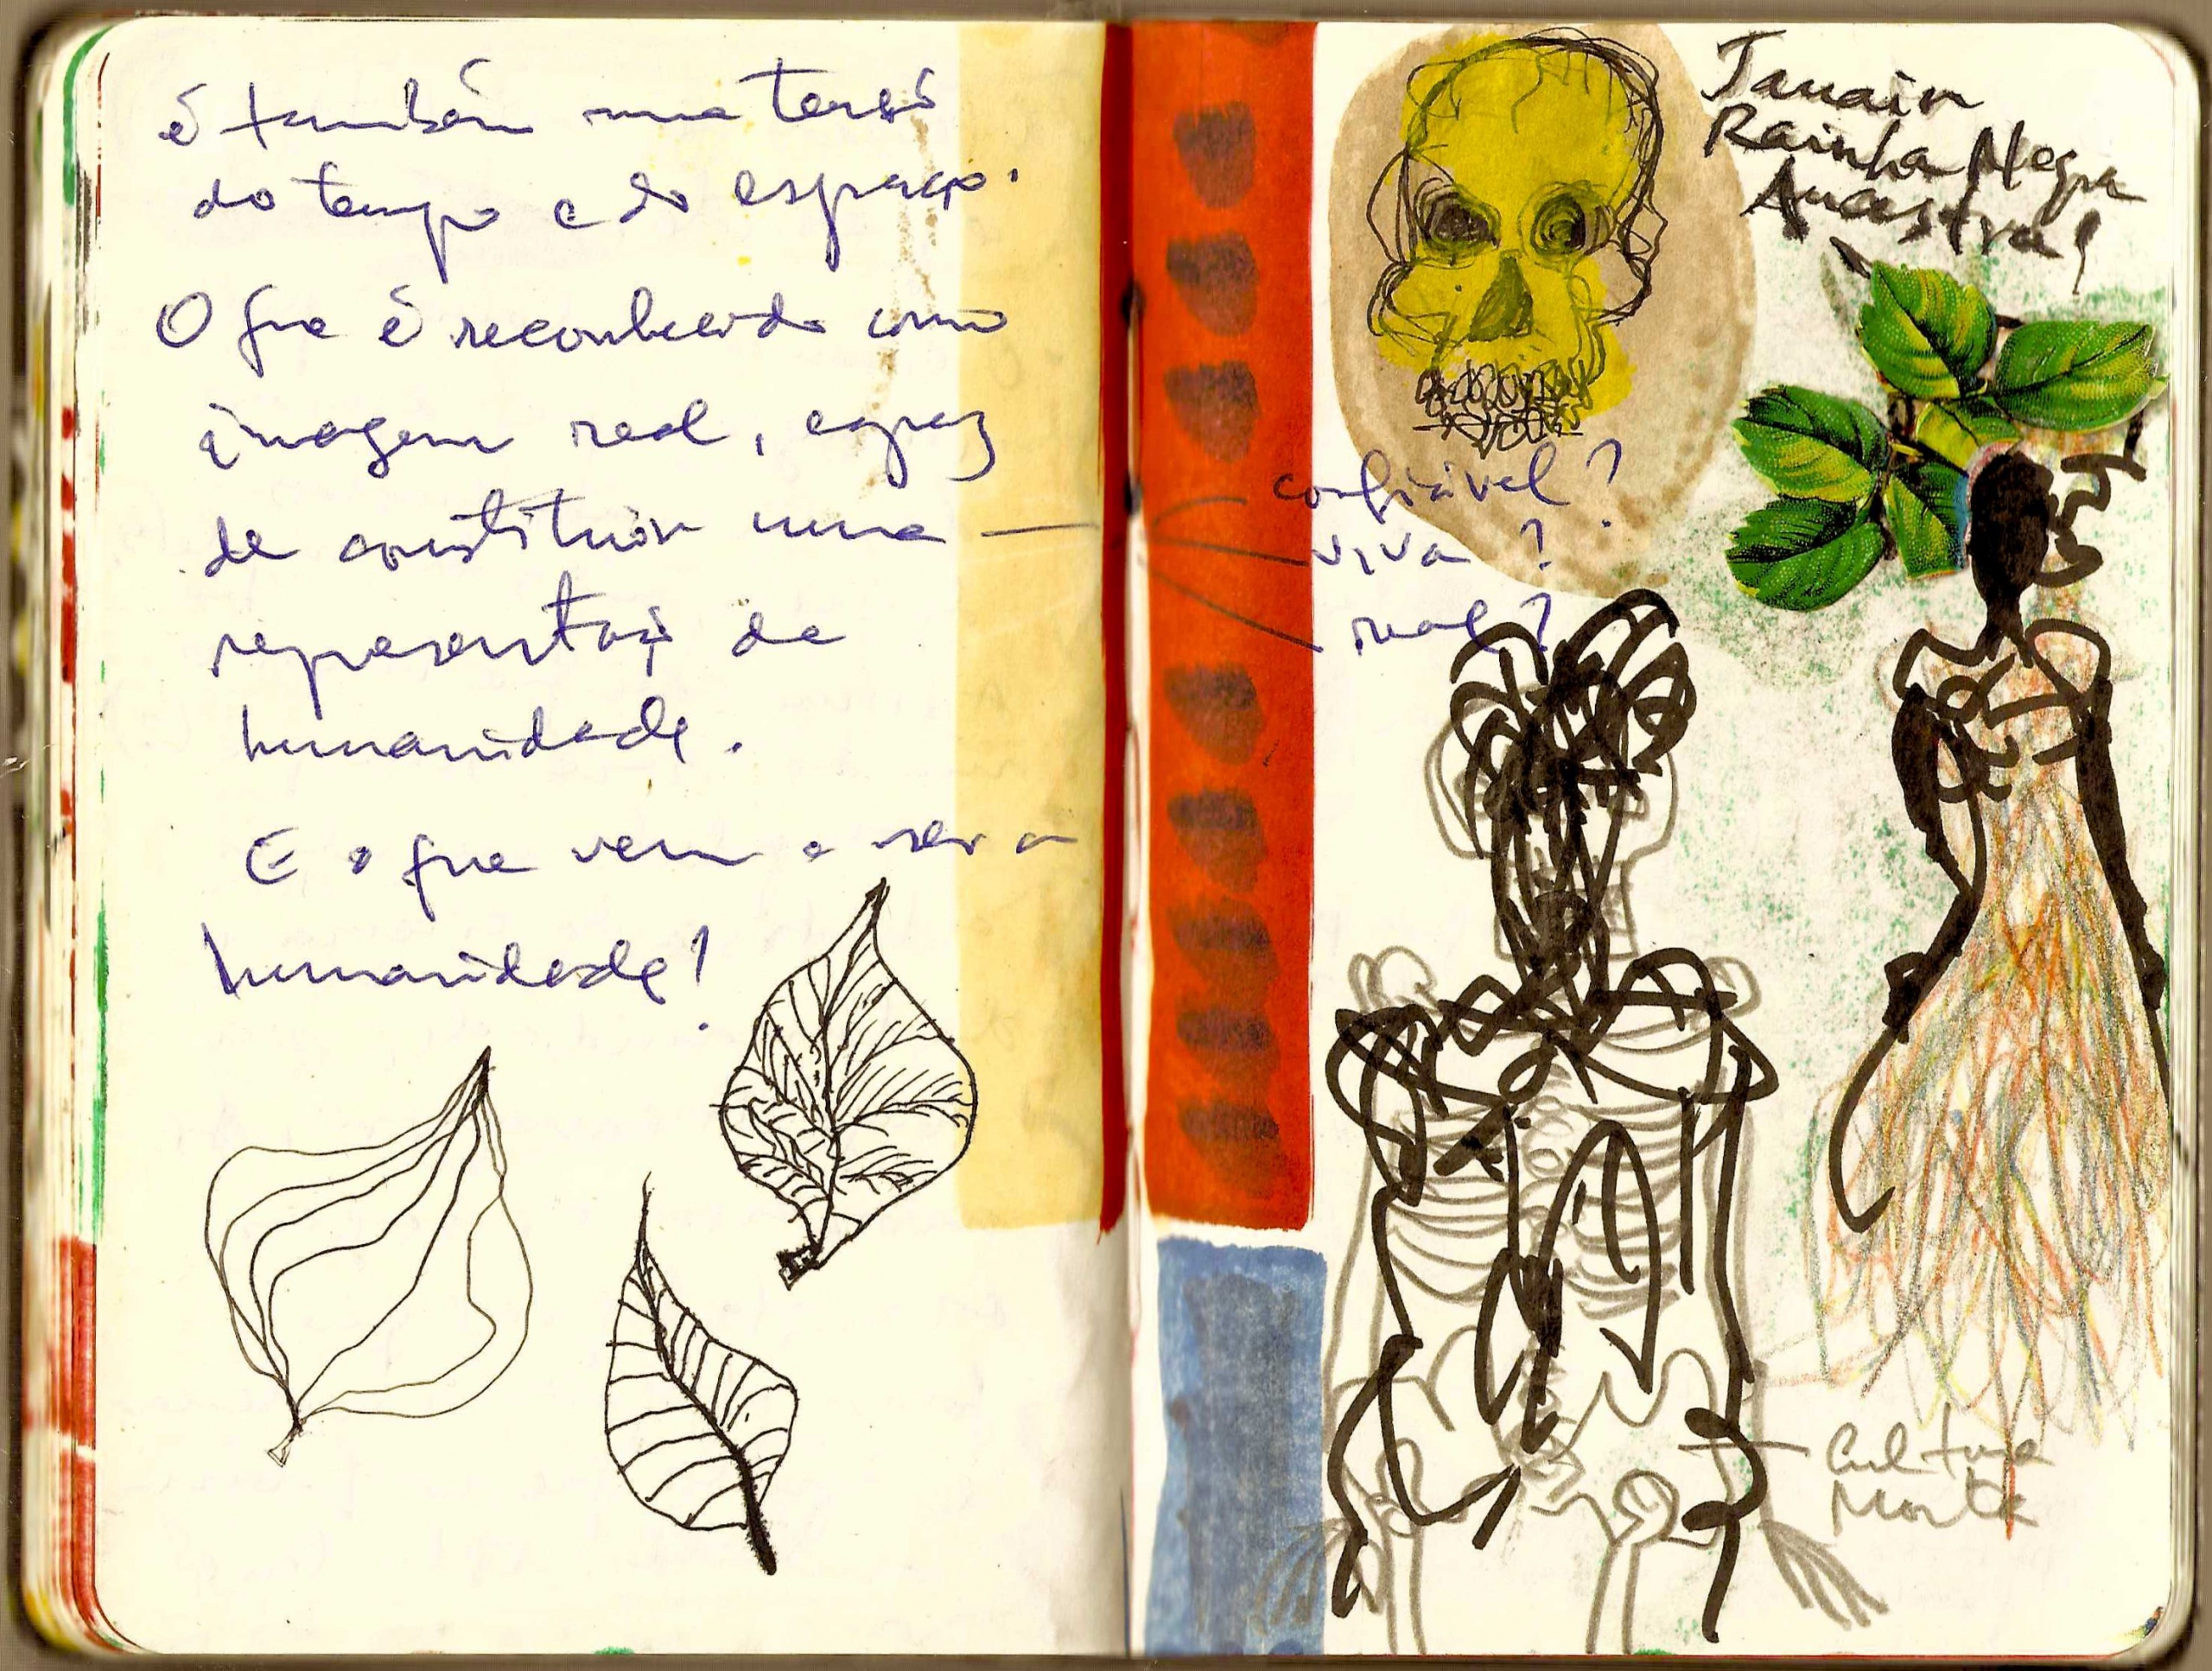 é também uma tensã
do tempo e do espaço.
O que é reconhecido como
imagem real, capaz
de constituir uma
representaçã de
humanidade.
E o que vem a ser a
humanidade?
Rainha Negra
Ancestral
confiável?
viva?
real?
Cultura
Morta